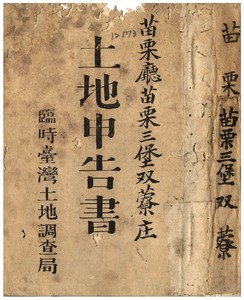 苗栗廳苗栗三堡双藔庄
土地申告書
臨時臺灣土地調查局
苗栗苗栗三堡双藔